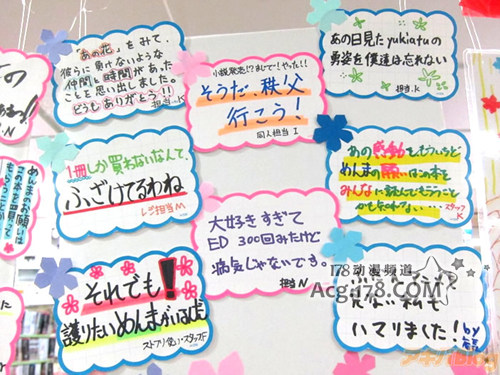 「あの花」をみて、
彼らに負けないような
仲間と時間があった
ことを思い出しました。
どうもありがとう!!
担当.K
小説発売!?まじで!やった!!
そうだ、秩父
行こう!
同人担当 I
あの日見たyukiatuの
勇姿を僕達は忘れない
担当.K
N
めんまのお願いは
この本を四見って
もらうことか
1冊しか買わないなんて、
ふざけてるわね
レジ担当M
大好きすぎて
ED 300回みたけど
病気じゃないです。
担当N
あの感動をもういちど
めんまの願いはこの本を
みんなに読んでもらうこと
かもしれない…
スタッフK
それでも!
護りたいめんまがいるんだ
ストフリ覚い・スタッフF
見ない私も
ハマりました!
by
178动漫频道
Acg178.COM
アキバBlog